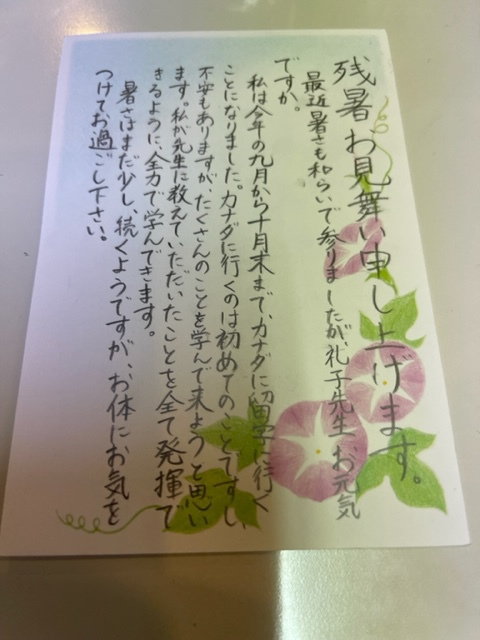 残暑お見舞い申し上げます。
最近暑さも和らいで参りましたが、礼子先生お元気
ですか。
私は今年の九月から十月末まで、カナダに留学に行く
ことになりました。カナダに行くのは初めてのことですし、
不安もありますが、たくさんのことを学んで来ようと思い
ます。私が先生に教えていただいたことを全て発揮で
きるように、全力で学んできます。
暑さはまだ少し、続くようですが、お体にお気を
つけてお過ごし下さい。